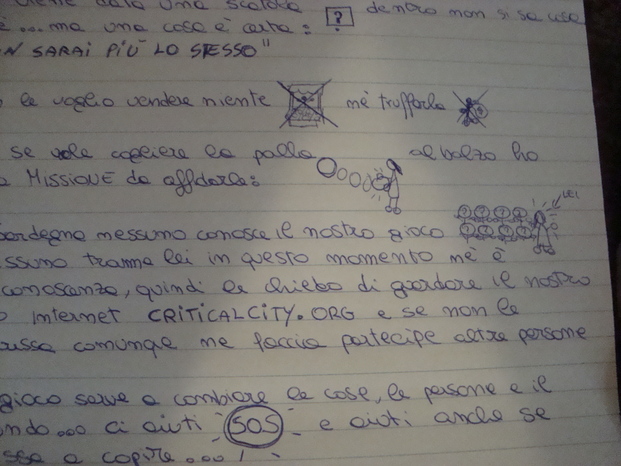 dalla una scatola dentro non si sa cosa
c'è ... ma una cosa è certa: ?
NON SARAI PIÙ LO STESSO"
le voglio vendere niente né truffarla
se vole cogliere la palla al balzo ho
MISSIONE da affidarle:
Sardegna nessuno conosce il nostro gioco LEI
nessuno tranne lei in questo momento né è
conoscenza, quindi le chiedo di guardare il nostro
INTERNET CRITICALCITY.ORG e se non le
comunque ne faccia partecipe altre persone
gioco serve a cambiare le cose, le persone e il
mondo... ci aiuti SOS e aiuti anche se
a capire ...!